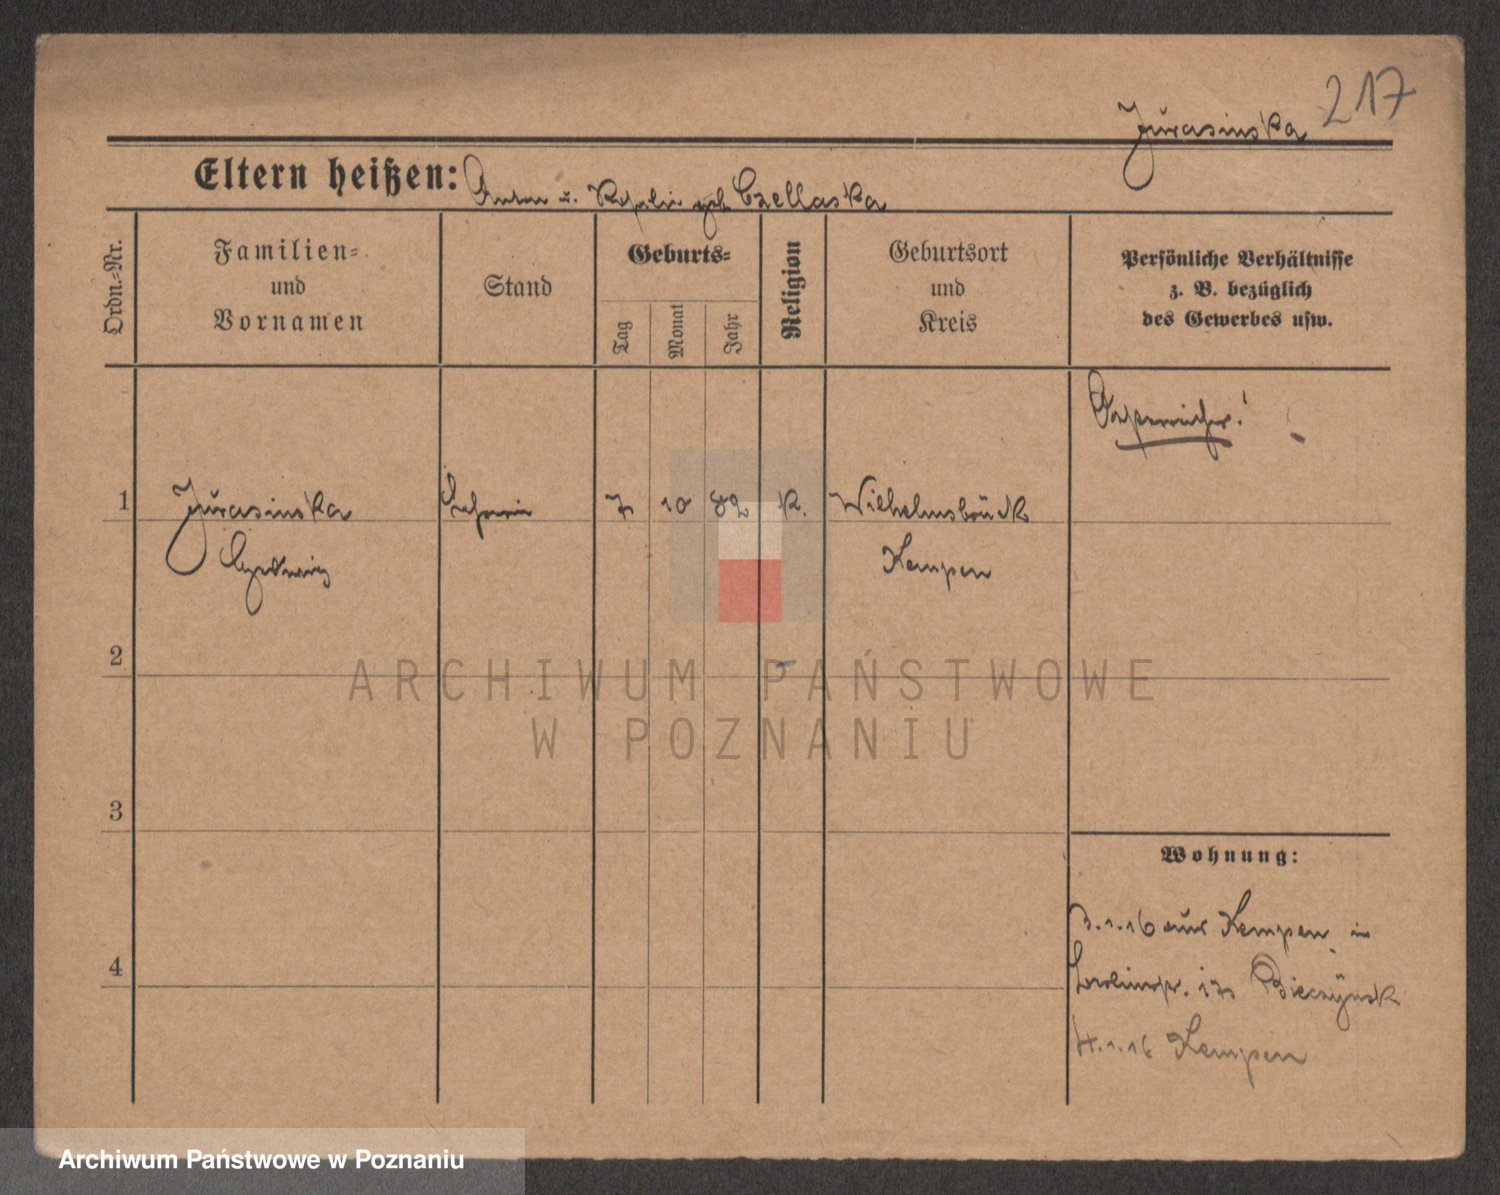 217
Jurasinska
Eltern heißen: Anton u. Rosalie geb Czellaska
Ordn.-Nr.
Familien-
und
Vornamen
Stand
Geburts-
Tag
Monat
Jahr
Religion
Geburtsort
und
Kreis
Persönliche Verhältnisse
z. B. bezüglich
des Gewerbes usw.
1 Jurasinska 7 10 82 K. Wilhelmsbrück
Hedwig Kempen
2
3
4
Wohnung:
3.1.16 aus Kempen in
4.1.16 Kempen
ARCHIWUM PAŃSTWOWE
W POZNANIU
Archiwum Państwowe w Poznaniu